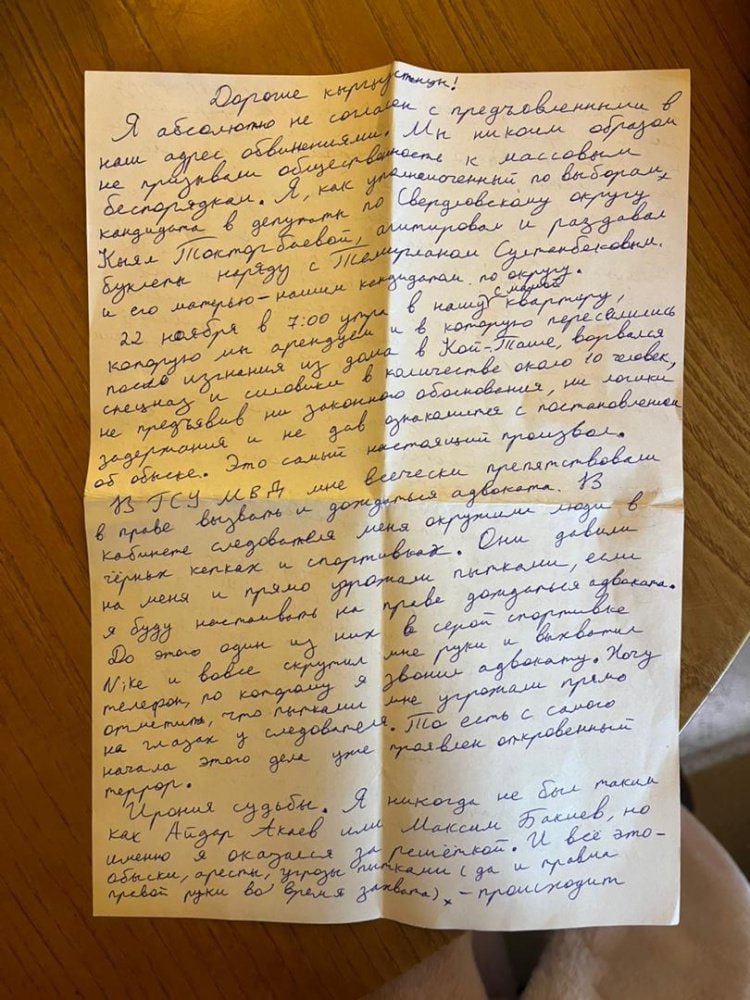 Дорогие кыргызстанцы!
Я абсолютно не согласен с предъявленными в
наш адрес обвинениями. Мы никоим образом
не призывали общественность к массовым
беспорядкам. Я, как уполномоченный по выборам
кандидата в депутаты по Свердловскому округу
Кыял Токторбаевой, агитировал и раздавал
буклеты наряду с Темирланом Султанбековым
и его матерью – нашим кандидатом по округу.
22 ноября в 7:00 утра в нашу с мамой квартиру,
которую мы арендуем и в которую переселились
после изгнания из дома в Кой-Таше, ворвался
спецназ и силовики в количестве около 10 человек,
не предъявив ни законного обоснования, ни логики
задержания и не дав ознакомится с постановлением
об обыске. Это самый настоящий произвол.
В ГСУ МВД мне всячески препятствовали
в праве вызвать и дождаться адвоката. В
кабинете следователя меня окружили люди в
чёрных кепках и спортивках. Они давили
на меня и прямо угрожали пытками, если
я буду настаивать на праве дождаться адвоката.
До этого один из них в серой спортивке
Nike и вовсе скрутил мне руки и выхватил
телефон, по которому я звонил адвокату. Хочу
отметить, что пытками мне угрожали прямо
на глазах у следователя. То есть с самого
начала этого дела уже проявлен откровенный
террор.
Ирония судьбы. Я никогда не был таким
как Айдар Акаев или Максим Бакиев, но
именно я оказался за решёткой. И всё это –
обыски, аресты, угрозы пытками (да и
правой руки во время захвата), – происходит